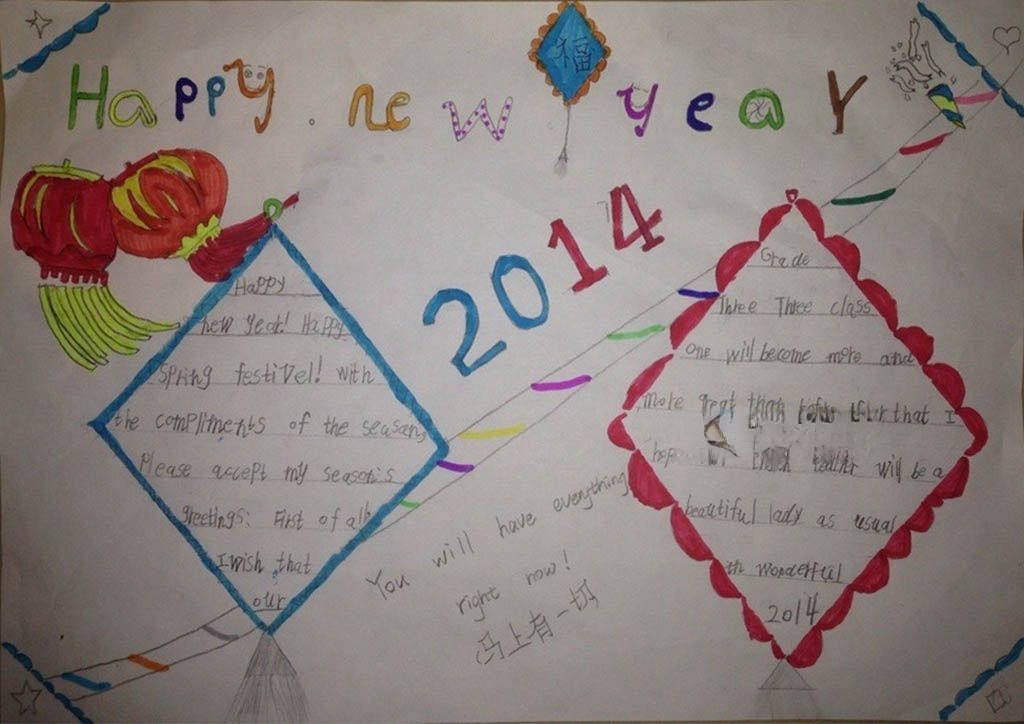 Happy. new year
福
2014
Happy
new year! Happy
Spring festivel! with
the compliments of the season,
Please accept my season's
greetings: First of all,
I wish that
our
Grade
Three Three class
one will become more and
more great that I
hope will be a
beautiful lady as usual
in wonderful
2014
You will have everything
right now!
马上有一切